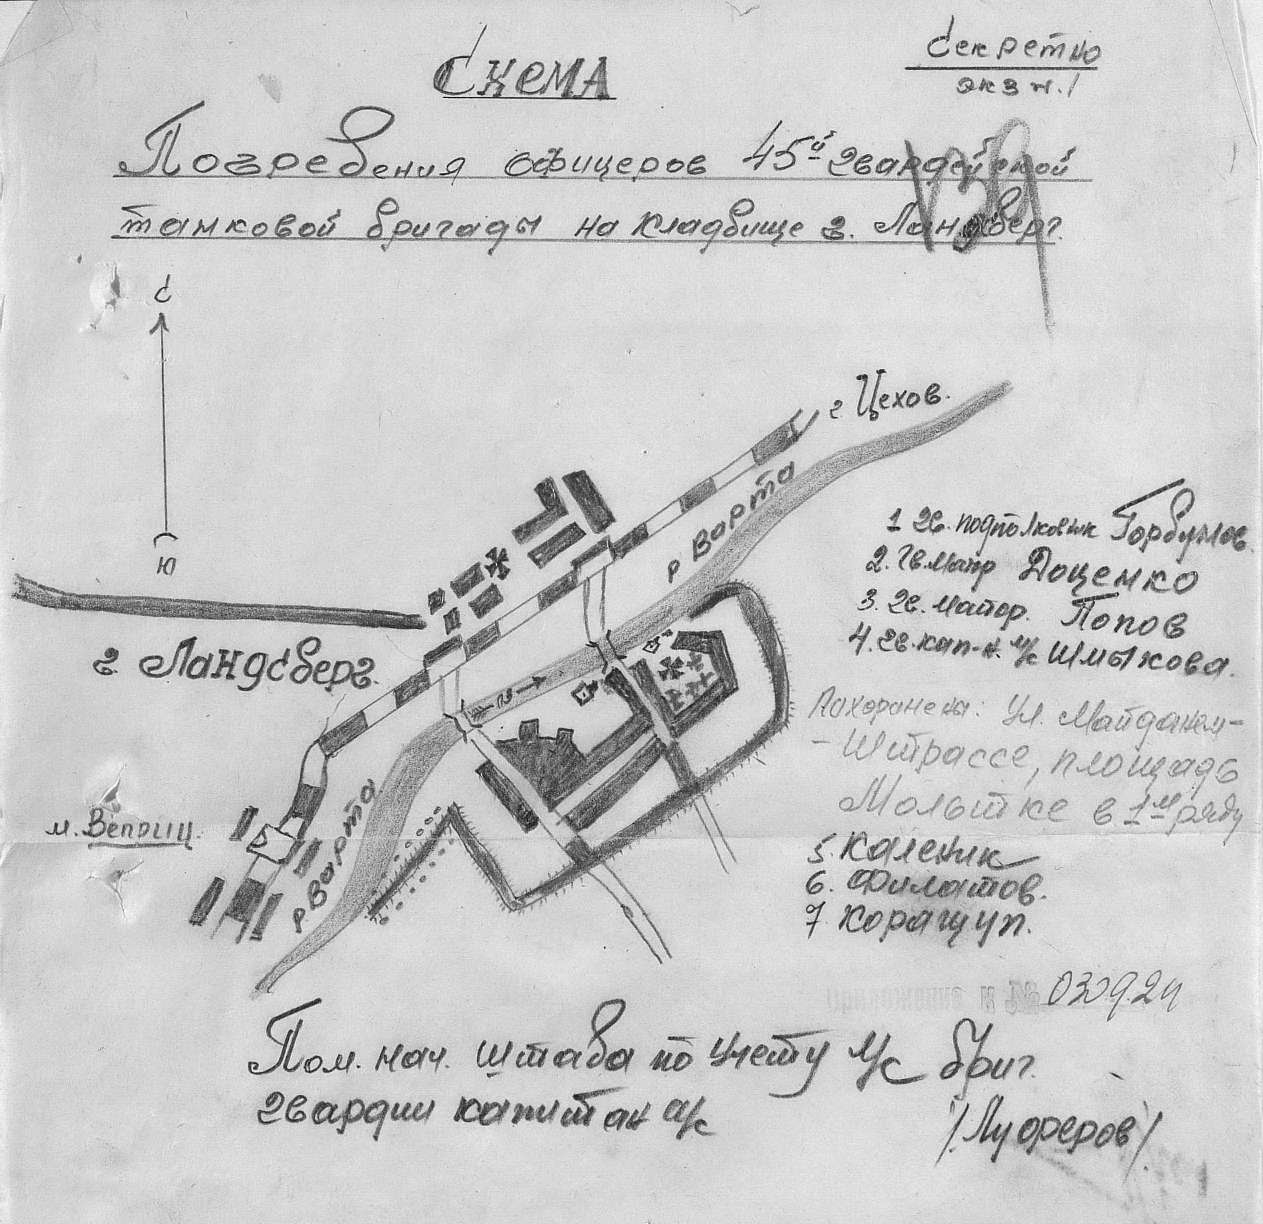 Секретно
экз н.1
Схема
Погребения офицеров 45й гвардейской
танковой бригады на кладбище г. Ландсберг.
С
Ю
г Цехов.
р Варта
г. Ландсберг.
м. Веприц.
р Варта
1 Гв. подполковник Горбунов.
2. Гв. Маир Доценко
3. Гв. Майор. Попов
4. Гв. кап-н. м/с Шмыкова.
Похоронена: Ул. Майданем-
-Штрассе, площадь
Мольтке в 1м ряду
5. Каленик
6. Филатов.
7 Коращуп.
Пом. нач. штаба по учету л/с бриг.
гвардии капитан а/с